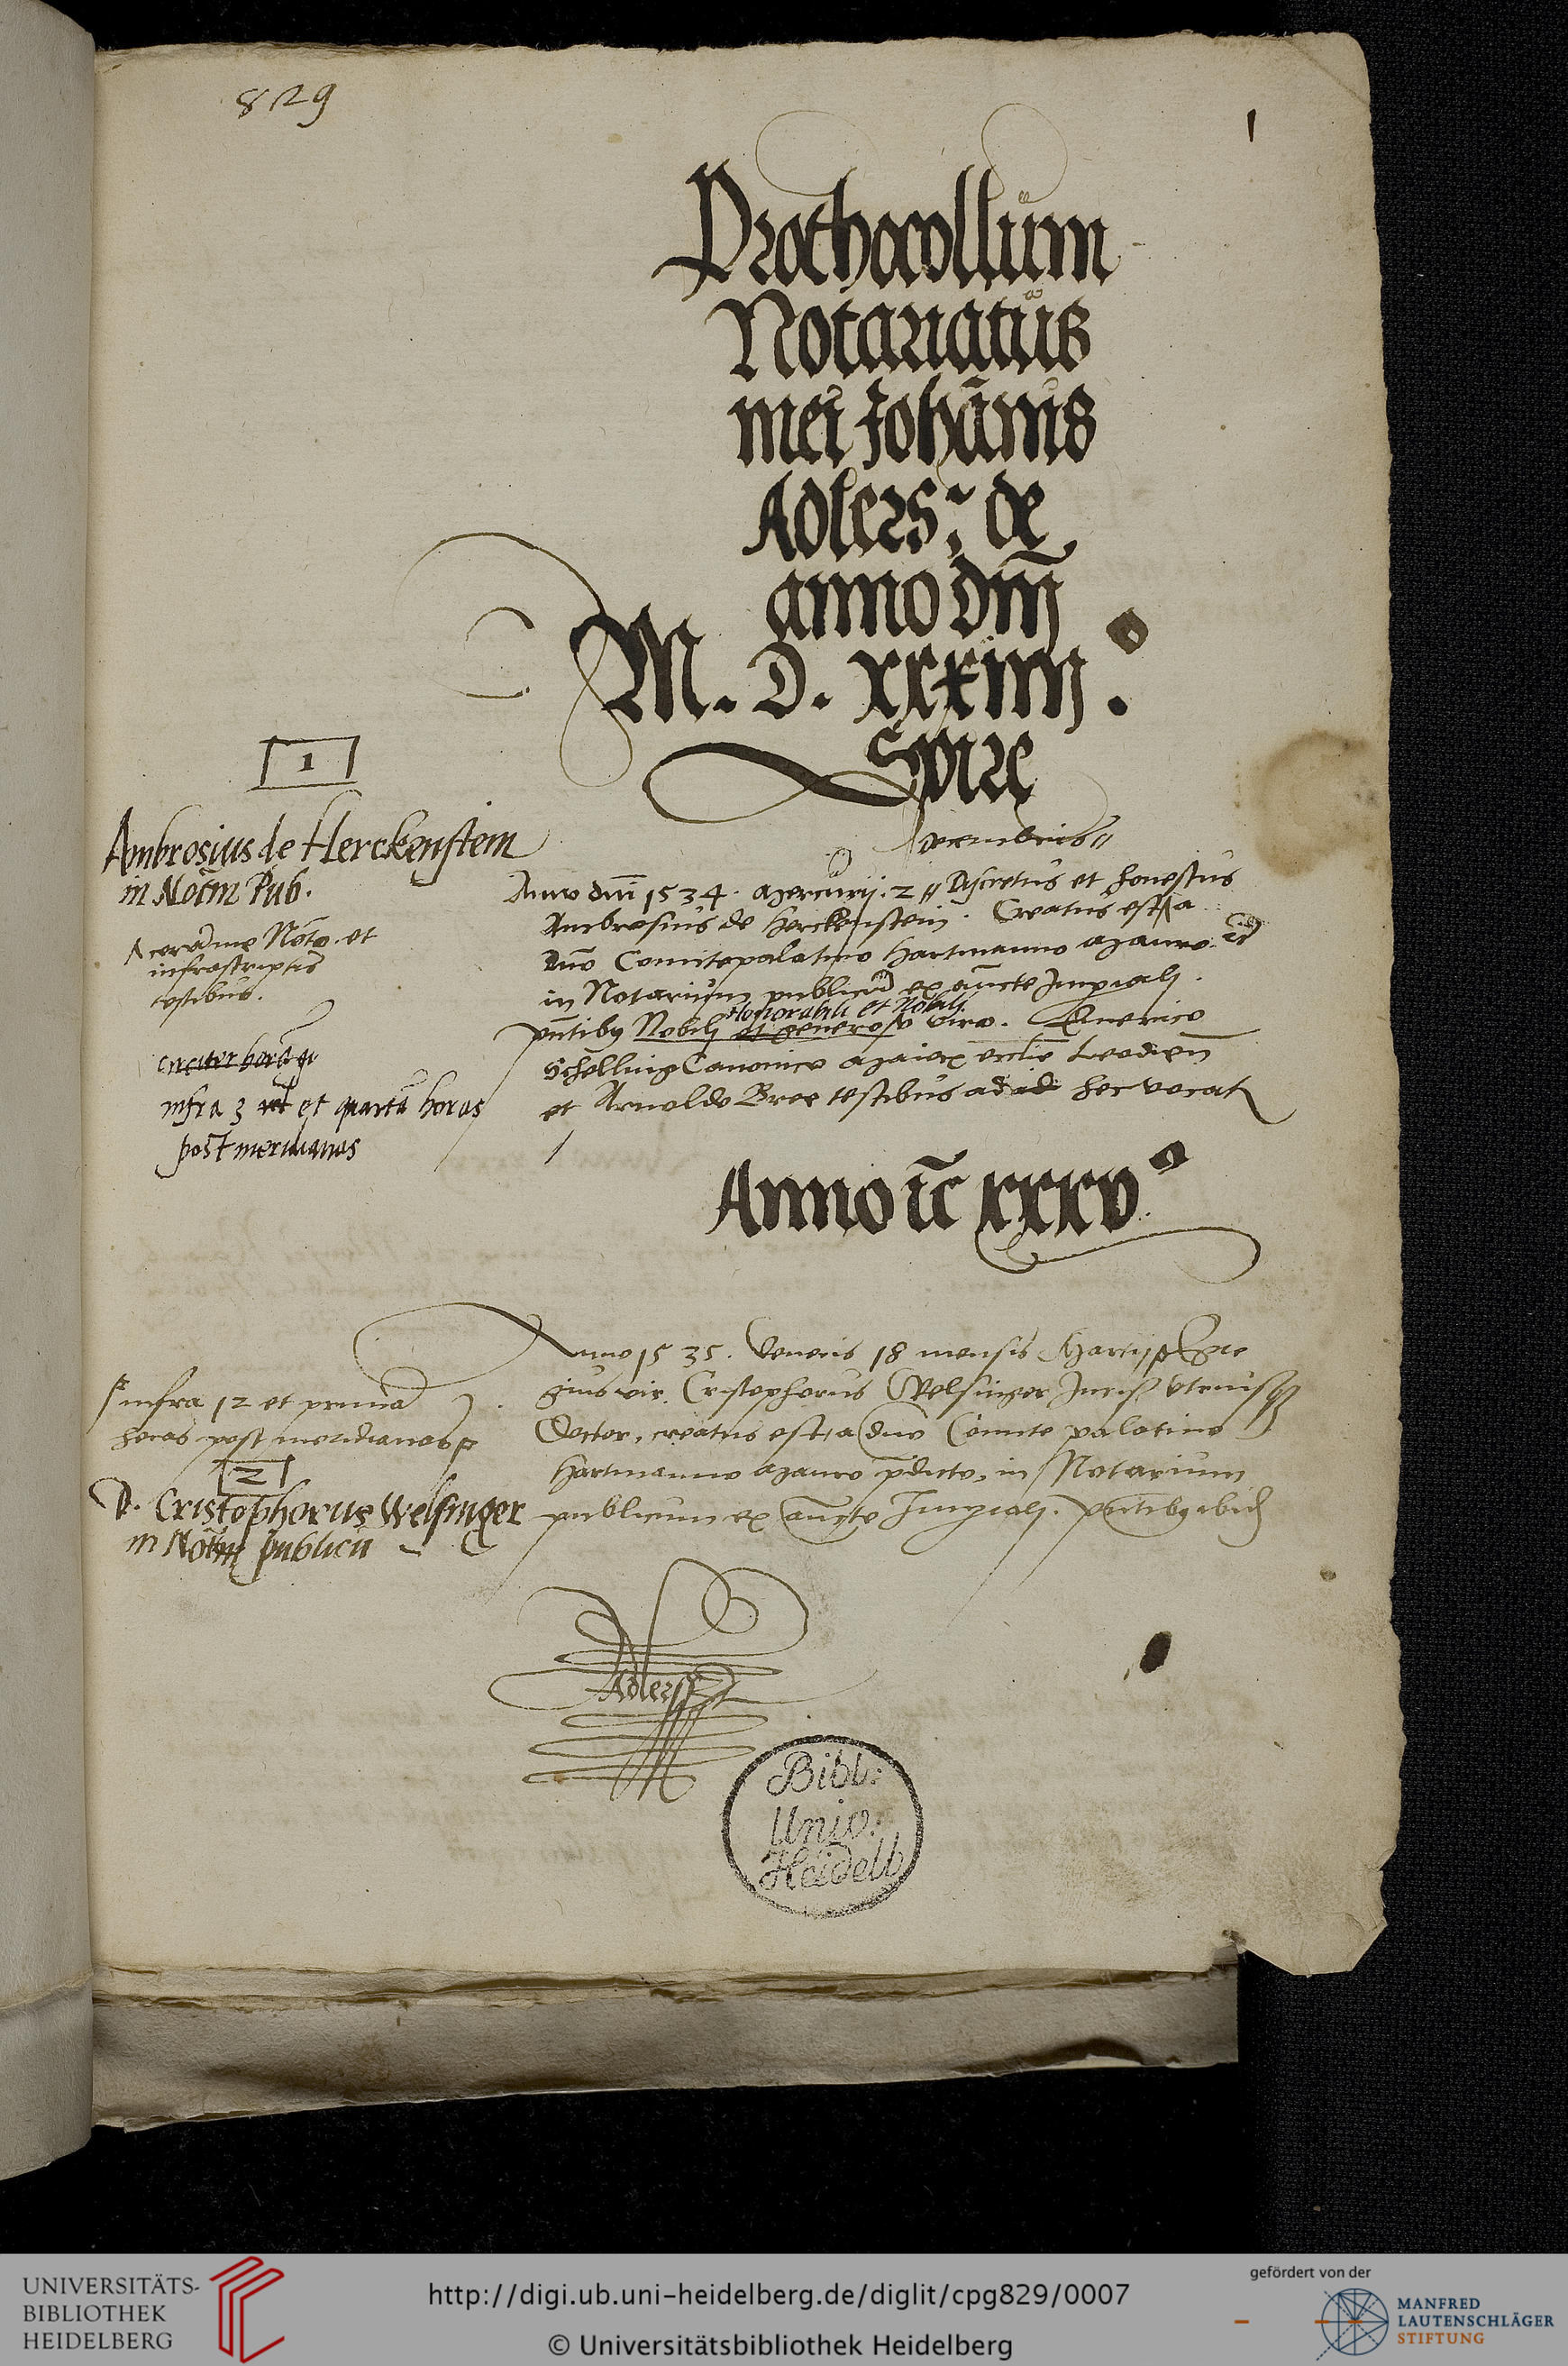 829
1
Prothocollum
Notariatus
mei Johānis
Adlers: de
anno dnj
M. D. xxxiiij.
Spire
1
Ambrosius de Herckenstein
in Notm̄ Pub.
Anno dnī 1534. Mercurij. 2 // Discretus et honestus
Ambrosius de Herckenstein. Creatus est a
Dno Comitepalatino Hartmanno Mauro
in Notarium publicū ex aucte Imperiali.
pn̄tibus Nobilj et generoso viro.
Honorabili et Nobilj
Schelling Canonico ecclie Leodien̄
et Arnoldo Bree testibus ad hec vocat
corā me Noto et
infrascriptis
testibus.
circiter horā
infra 3 et quartā horas
post meridianas
Anno xxxv
Anno 1535. Veneris 18 mensis Martij Egre
gius vir Cristophorus Welsinger Juris vtriusque
Doctor, creatus est a dno Comite palatino
Hartmanno Mauro pdicto, in Notarium
publicum ex aucte Imperialj. pntibus ibid
infra 12 et primā
horas post meridianas
2
D. Cristophorus Welsinger
in Notm̄ publicū
Adlers
Bibl:
Univ:
Heidelb
UNIVERSITÄTS-
BIBLIOTHEK
HEIDELBERG
http://digi.ub.uni-heidelberg.de/diglit/cpg829/0007
© Universitätsbibliothek Heidelberg
gefördert von der
MANFRED
LAUTENSCHLÄGER
STIFTUNG